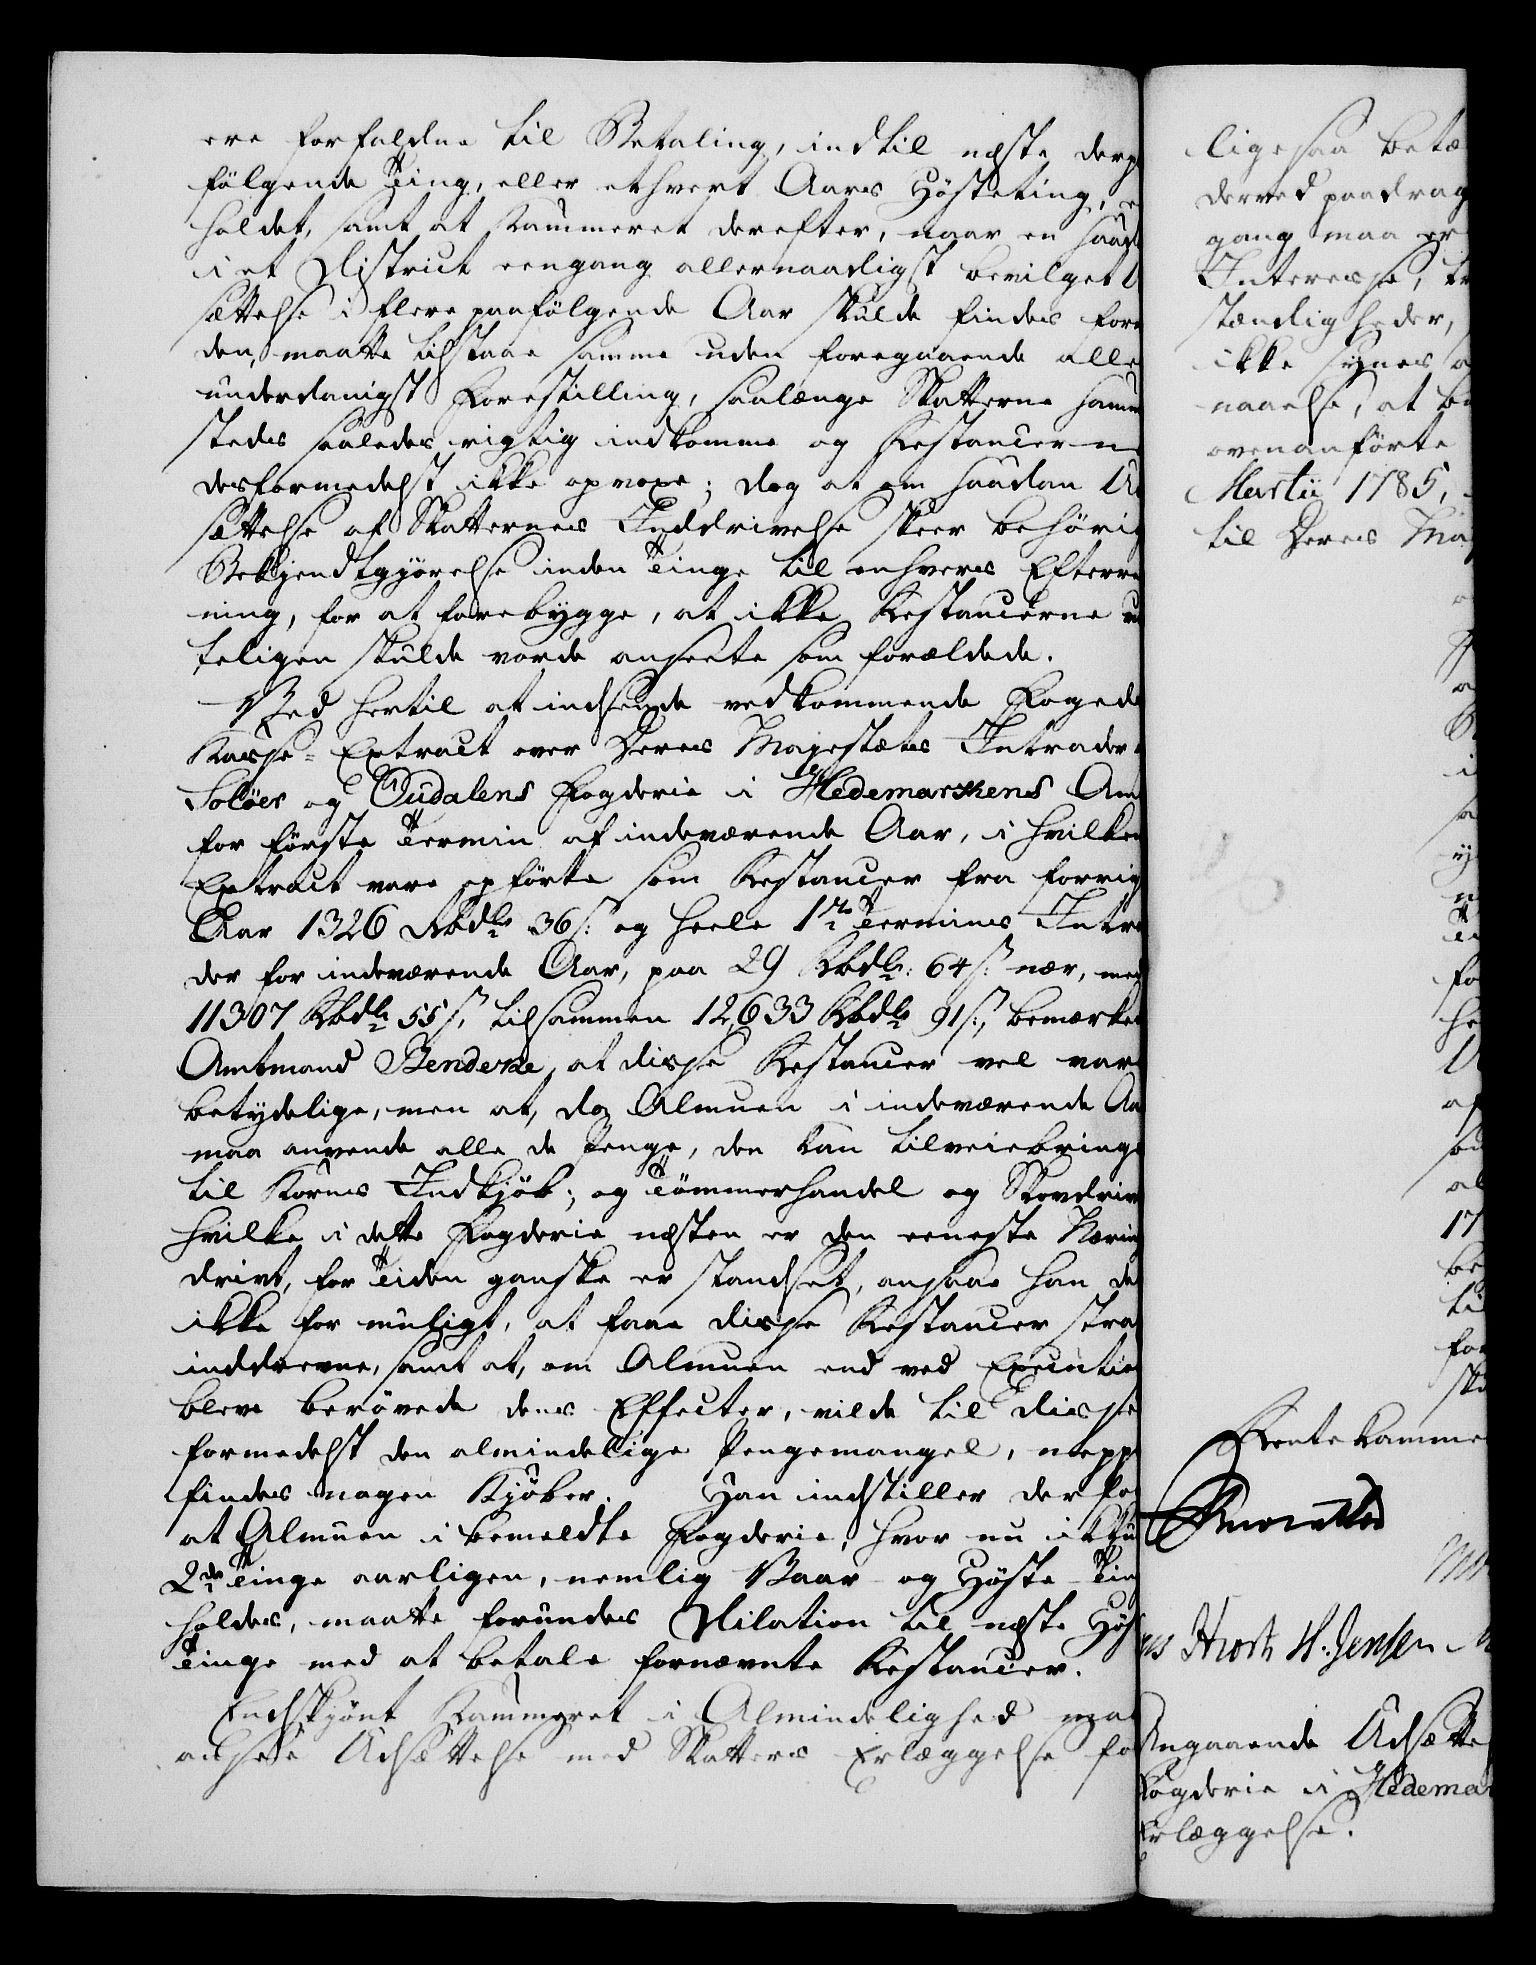 ere forfaldne til Betaling, indtil næste derp
følgende Ting, eller ethvert Aars Høsteting, e
holdet, samt at Kammeret derefter, naar en saad
i et District eengang allernaadigst bevilget U
sættelse i flere paafølgende Aar skulde findes forn
den, maatte tilstaae samme uden foregaaende alle
underdanigst Forestilling, saalænge Skatterne samm
stedes saaledes rigtig indkomme og Restancerne
desformedelst ikke opvoxe; dog at om saadan U
sættelse af Skatternes Inddrivelse skeer behørig
Bekjendtgjørelse inden Tinge til enhvers Efterre
ning, for at forebygge, at ikke Restancerne u
teligen skulde vorde ansete som forældede.
Ved hertil at indsende vedkommende Fogeds
Kasse-Extract over Deres Majestæts Intrader i
Soløer og Oudalens Fogderie i Hedemarkens Am
for første Termin af indeværende Aar, i hvilken
Extract vare opførte som Restancer fra forrig
Aar 1326 Rbdlr 36 s: og heele 1ste Termins Intra
der for indeværende Aar, paa 29 Rbdlr: 64 s: nær, med
11307 Rbdlr 55 s, tilsammen 12,633 Rbdlr 91 s:, bemærker
Amtmand Bendeke, at disse Restancer vel vare
betydelige, men at, da Almuen i indeværende Aa
maa anvende alle de Penge, den kan tilveiebringe
til Korns Indkjøb; og Tømmerhandel og Skovdrivt
hvilke i dette Fogderie næsten er den eeneste Nærin
drivt, for Tiden ganske er standset, ansaae han de
ikke for muligt, at faae disse Restancer stra
inddrevne, samt at, om Almuen end ved Execution
bleve berøvede dens Effecter, vilde til disse
formedelst den almindelige Pengemangel, nepp
findes nogen Kjøber. Han indstiller derfor
at Almuen i bemeldte Fogderie, hvor nu ikku
2de Tinge aarligen, nemlig Vaar- og Høste-Tin
holdes, maatte forundes Dilation til næste Høs
Tinge med at betale fornævnte Restancer.
Endskjønt Kammeret i Almindelighed maa
ansee Udsættelse med Skatters Erlæggelse for
ligesaa betæ
derved paadrag
gang maa er
Interesse, tr
stændigheder,
ikke synes a
naaelse, at be
ovenanførte
Martii 1785,
til Deres Maj
17
Rentekamme
Hiorth H. Jensen
Angaaende Udsætte
Fogderie i Hedemar
Erlæggelse.